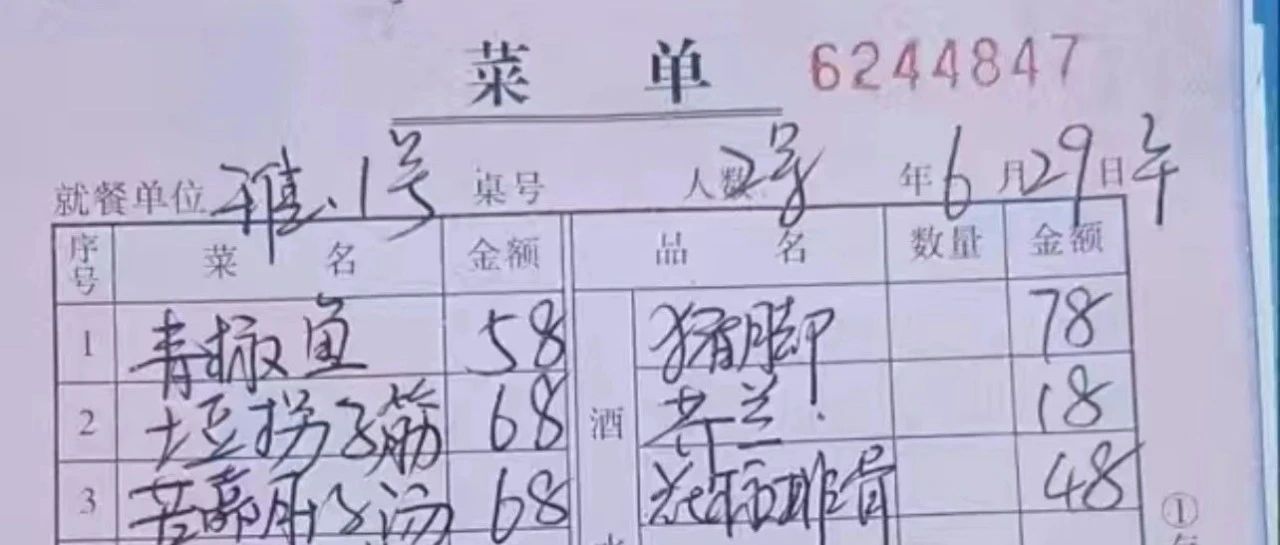 菜 单 6244847
就餐单位 雅.1号 桌号 人数 2号 年6月29日午
序号 菜名 金额 品名 数量 金额
1 青椒鱼 58 猪脚 78
2 土豆拐子筋 68 酒 芥兰 18
3 68 排骨 48
①